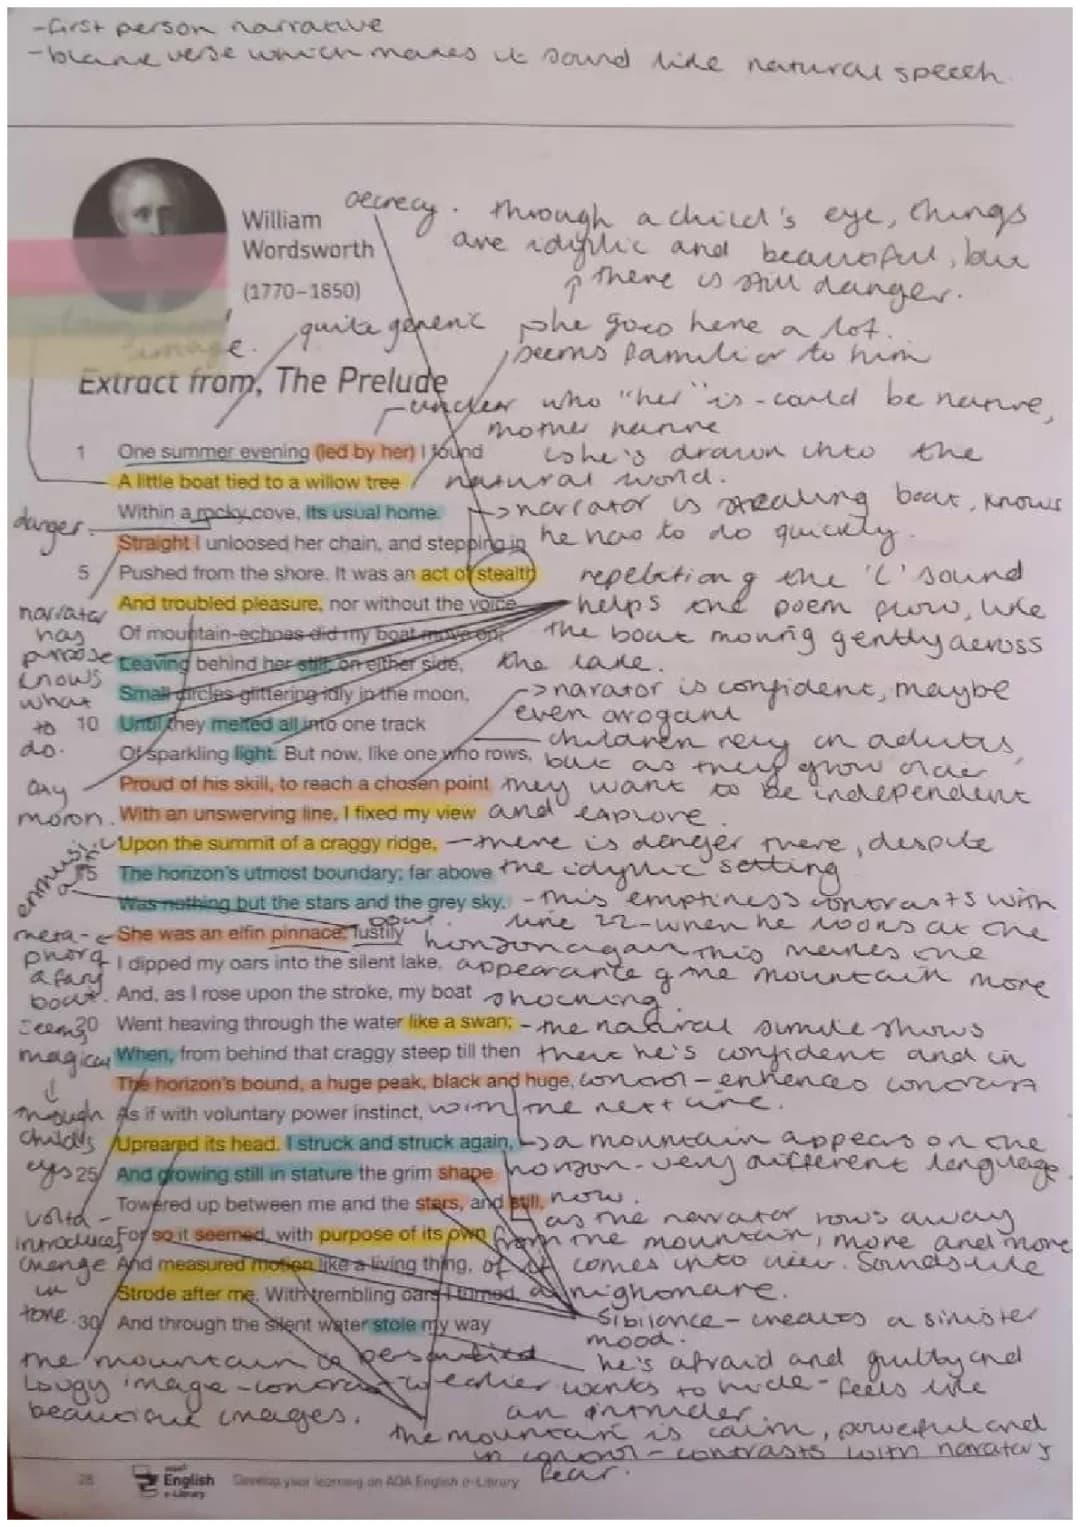 -first person narrative
-blank verse which makes it sound like natural speech.
William
Wordsworth
(1770–1850)
secrecy.
through a child's eye, things
are idyllic and beautiful, but
there is still danger.
quite generic
image.
she goes here a lot.
seems familiar to him
Extract from, The Prelude
unclear who "her" is - could be nature,
mother nature
she's drawn into the
natural world.
1 One summer evening (led by her) I found
A little boat tied to a willow tree
Within a rocky cove, its usual home.
Straight I unloosed her chain, and stepping in
5 Pushed from the shore. It was an act of stealth
And troubled pleasure, nor without the voice
Of mountain-echoes did my boat move on;
Leaving behind her still, on either side,
Small circles glittering idly in the moon,
10 Until they melted all into one track
Of sparkling light. But now, like one who rows,
Proud of his skill, to reach a chosen point
With an unswerving line, I fixed my view
Upon the summit of a craggy ridge,
15 The horizon's utmost boundary; far above
Was nothing but the stars and the grey sky.
She was an elfin pinnace; lustily
I dipped my oars into the silent lake,
And, as I rose upon the stroke, my boat
20 Went heaving through the water like a swan;
When, from behind that craggy steep till then
The horizon's bound, a huge peak, black and huge,
As if with voluntary power instinct,
Upreared its head. I struck and struck again,
25 And growing still in stature the grim shape
Towered up between me and the stars, and still,
For so it seemed, with purpose of its own
And measured motion like a living thing,
Strode after me. With trembling oars I turned,
30 And through the silent water stole my way
narrator is stealing boat, knows
he has to do quickly.
repetition of the 'l' sound
helps the poem flow, like
the boat moving gently across
the lake.
narator is confident, maybe
even arogant
children rely on adults,
but as they grow older
they want to be independent
and explore.
there is danger there, despite
the idyllic setting
this emptiness contrasts with
line 22 - when he looks at the
horizon again this makes the
appearance of the mountain more
shocking.
the natural simile shows
that he's confident and in
control - enhances contrast
with the next line.
a mountain appears on the
horizon - very different language
now.
as the narrator rows away
from the mountain, more and more
of it comes into view. Sounds like
a nighmare.
Sibilance - creates a sinister
mood.
he's afraid and guilty and
wants to hide - feels like
an intruder.
the mountain is calm, powerful and
in control - contrasts with narrators
fear.
danger.
narrator
has
purpose
knows
what
to
do.
boat
meta-
phor of
a fairy
boat.
seems
magical
through
child's
eyes
volta -
introduces
change
in
tone.
the mountain is personified
ugly image - contrast w earlier
beautiful images.
28
English
e-Library
Develop your learning on AQA English e-Library